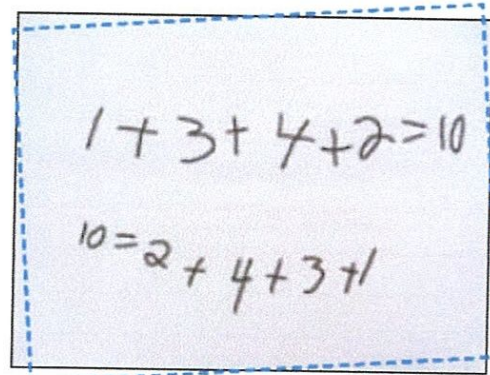 1+3+4+2=10
10=2+4+3+1